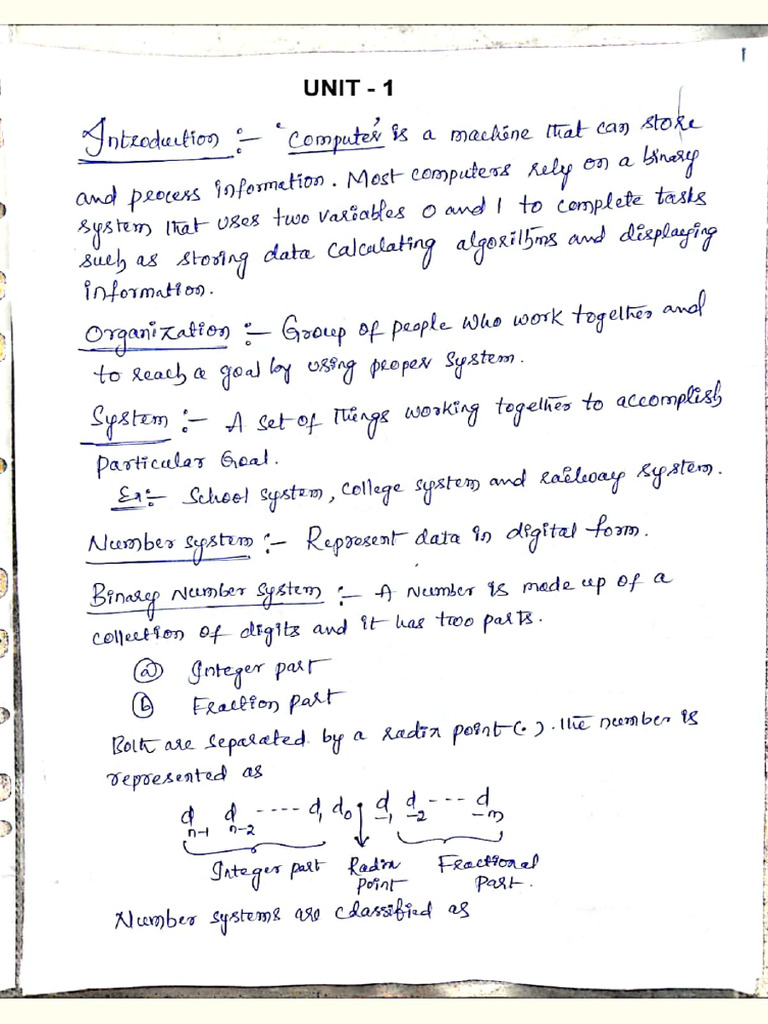 1
UNIT - 1
Introduction :- 'Computer' is a machine that can store
and process information. Most computers rely on a binary
system that uses two variables 0 and 1 to complete tasks
such as storing data calculating algorithms and displaying
information.
Organization :- Group of people who work together and
to reach a goal by using proper system.
System :- A set of things working together to accomplish
particular Goal.
Ex:- School system, college system and railway system.
Number system :- Represent data in digital form.
Binary Number System :- A Number is made up of a
collection of digits and it has two parts.
(a) Integer part
(b) Fraction part
Both are separated by a radix point (.). The number is
represented as
d_{n-1} d_{n-2} ---- d_1 d_0 . d_{-1} d_{-2} --- d_{-m}
Integer part Radix Fractional
point Part.
Number systems are classified as